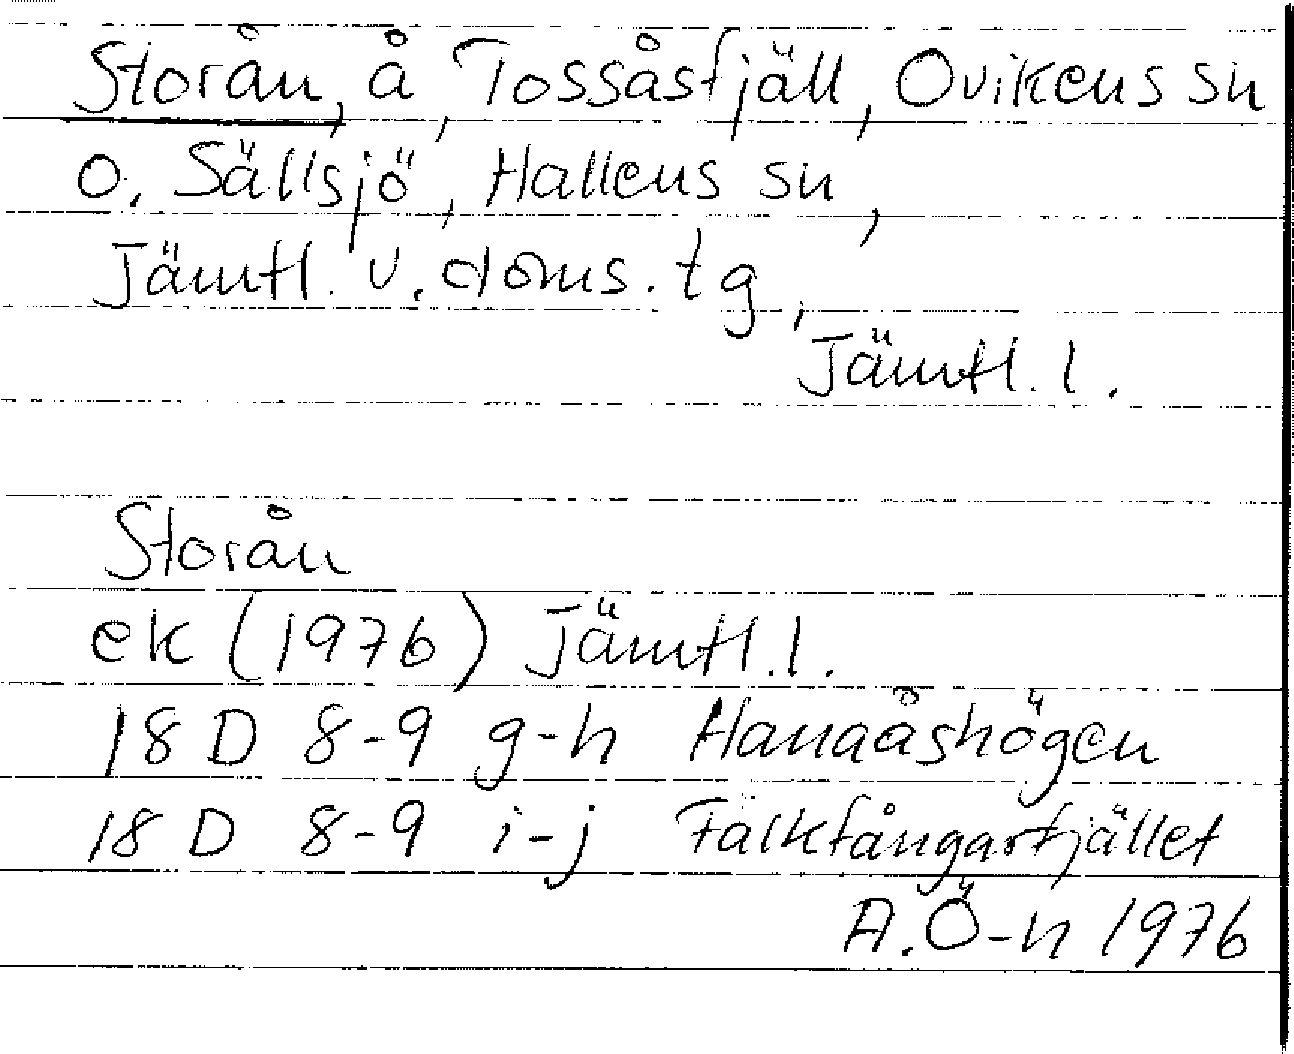 Storån, å, Tossåsfjäll, Ovikens sn
o. Sällsjö, Hallens sn,
Jämtl. v. doms. tg,
Jämtl. l.
Storån
ek (1976) Jämtl. l.
18 D 8-9 g-h Hanaåshögen
18 D 8-9 i-j Falkfångarfjället
A.Ö-n 1976